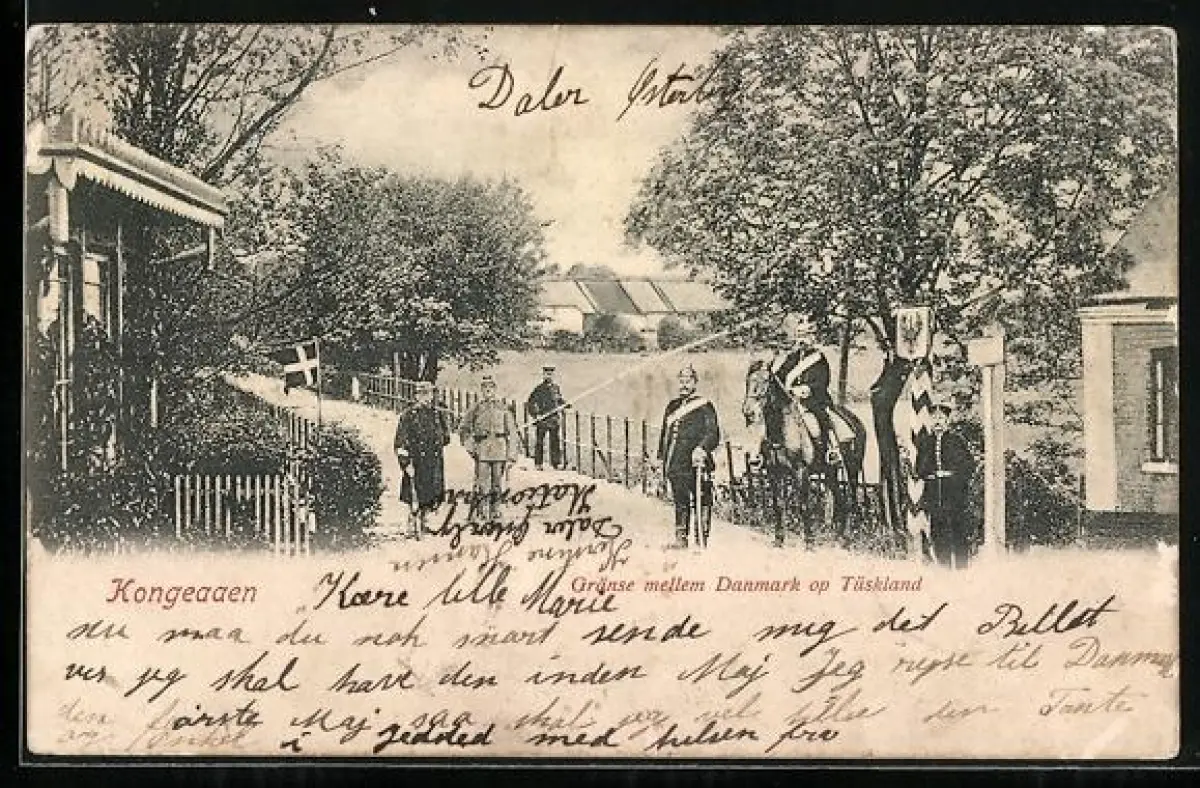 Daler Østerby
Station
Daler Østerby
Hansen
Kongeaaen
Gränse mellem Danmark op Tüskland
Kære lille Marie
du maa du nok snart sende mig det Billet
ves jeg skal have den inden Maj Jeg rejse til Danmark
den første Maj saa skal jeg lille den Tante
i jedded med helsen fra